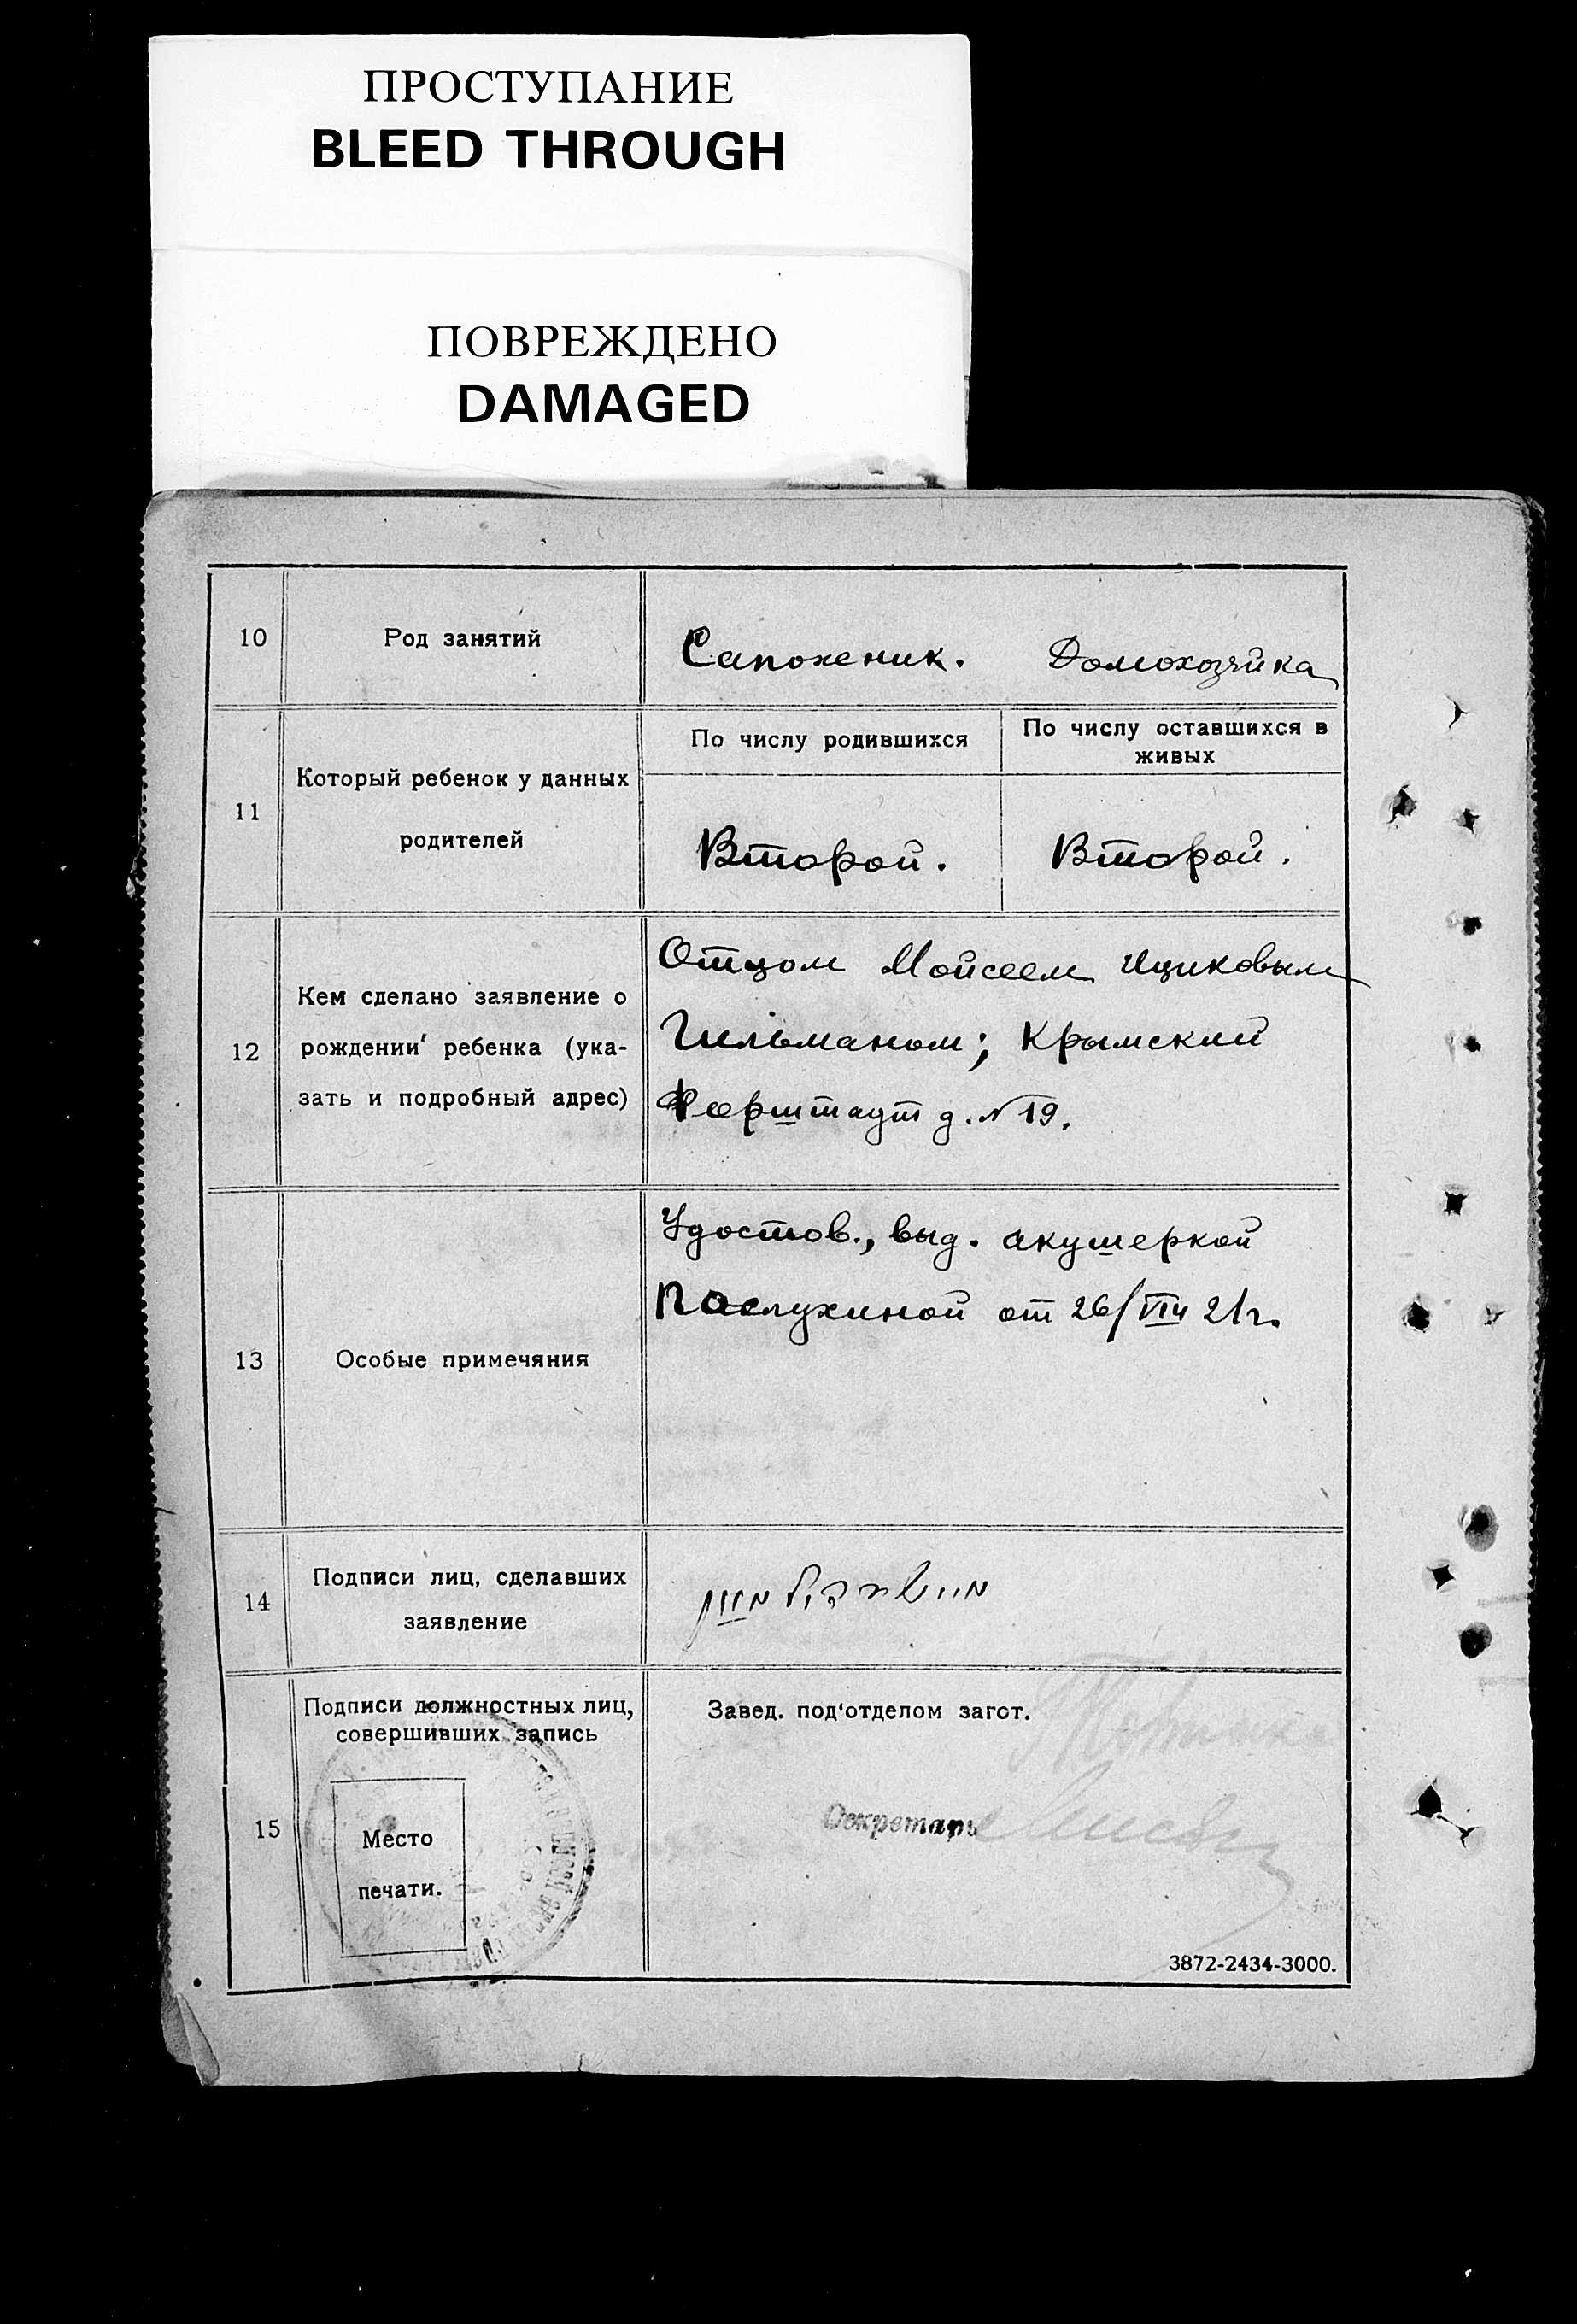 ПРОСТУПАНИЕ
BLEED THROUGH
ПОВРЕЖДЕНО
DAMAGED
10 Род занятий Сапожник. Домохозяйка
11 Который ребенок у данных
родителей
По числу родившихся
По числу оставшихся в
живых
Второй. Второй.
12 Кем сделано заявление о
рождении ребенка (ука-
зать и подробный адрес)
Отцом Мойсеем Ициковым
Гильманом; Крымский
Форштадт д. № 19.
13 Особые примечяния
Удостов., выд. акушеркой
Паслухиной от 26/VIII 21 г.
14 Подписи лиц, сделавших
заявление
15 Подписи должностных лиц,
совершивших запись
Место
печати.
Завед. под'отделом загст.
Секретарь
3872-2434-3000.